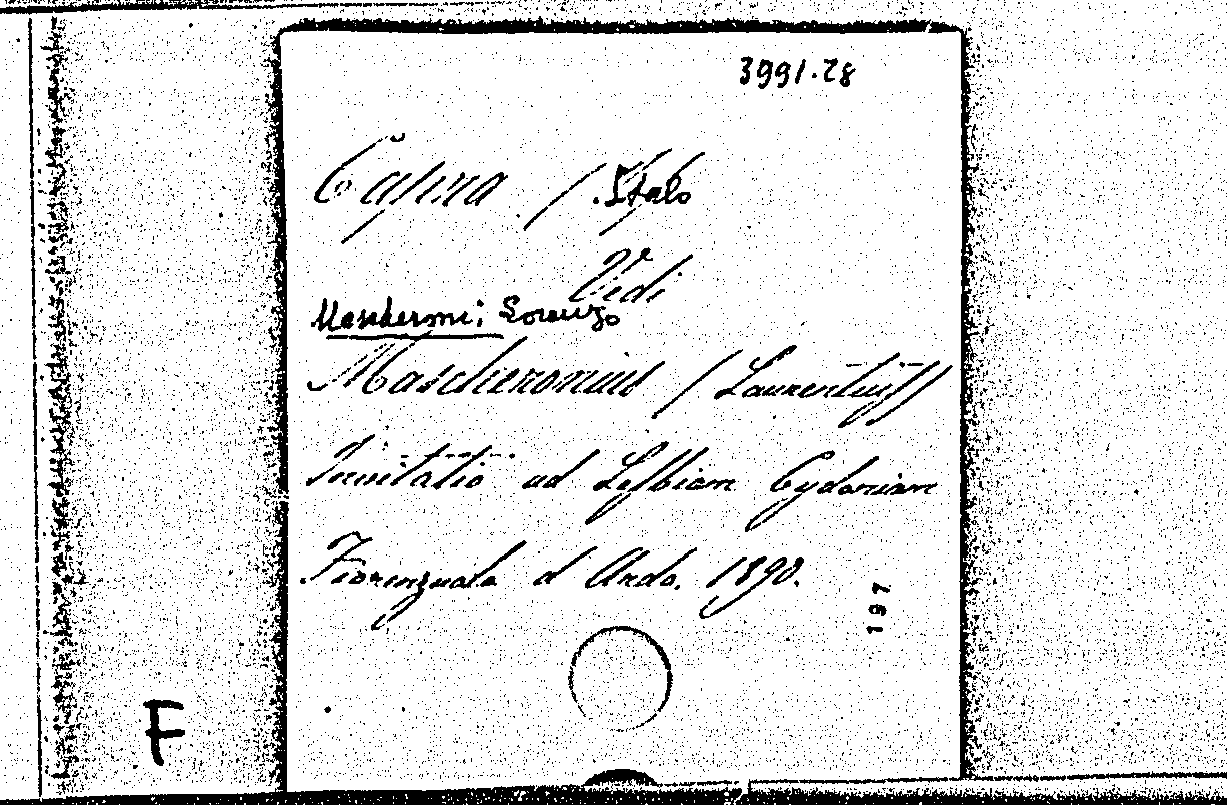 3991.28
Capra / Italo
Vedi
Mascheroni; Lorenzo
Mascheronius / Laurentius /
Invitatio ad Lesbiam Cydoniam
Fiorenzuola d Arda. 1890.
197
F